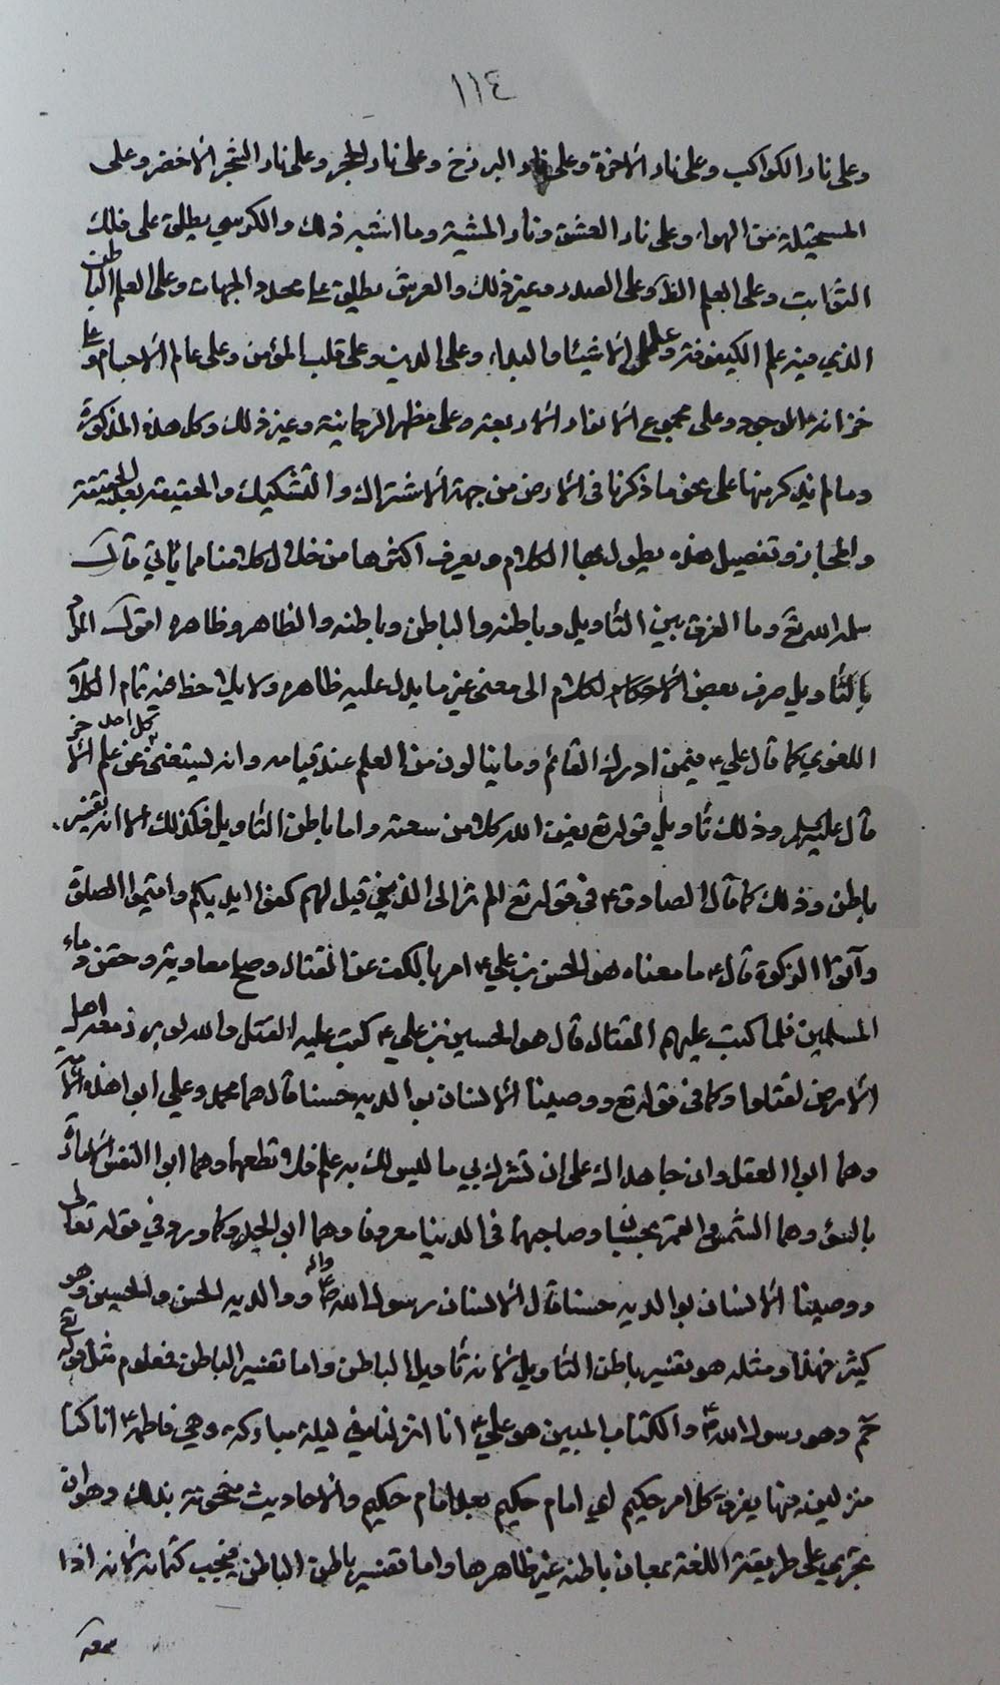 ١١٤
وعلى نار الكواكب وعلى نار الآخرة وعلى نار البرزخ وعلى نار الحجر وعلى نار الشجر الأخضر وعلى
المستحيلة من الهواء وعلى نار العشق ونار المشية وما اشبه ذلك والكرسي يطلق على فلك
الثوابت وعلى العلم الظ وعلى الصدر وغير ذلك والعرش يطلق على محدد الجهات وعلى العلم الباطن
الذي فيه علم الكيفوفة وعلل الأشياء والبداء وعلى الدين وعلى قلب المؤمن وعلى عالم الأجسام وعلى
خزانة الموجود وعلى مجموع الأنوار الأربعة وعلى مظهر الرحمانية وغير ذلك وكل هذه المذكورة
وما لم نذكر منها على نحو ما ذكرنا في الأرض من جهة الاشتراك والتشكيك والحقيقة بعد الحقيقة
والمجاز وتفصيل هذه يطول بها الكلام ويعرف اكثرها من خلال كلامنا مما يأتي قال
سلمه الله تع وما الفرق بين التأويل وباطنه والباطن وباطنه والظاهر وظاهره اقول المراد
بالتأويل صرف بعض الكلام الى معنى غير ما يدل عليه ظاهره ولا يلاحظ فيه تمام الكلام
اللغوي كما قال علي ع فيمن ادرك القائم وما ينالون من العلم عند قيامه وانه ليستغني كل احد عن علم الآخر
قال عليه السلم وذلك تأويل قوله تع يغن الله كلا من سعته واما باطن التأويل فكذلك الا انه تفسير
باطن وذلك كما قال الصادق ع في قوله تع الم تر الى الذين قيل لهم كفوا ايديكم واقيموا الصلوة
وآتوا الزكوة قال ع ما معناه هو الحسن بن علي ع امر بالكف عن القتال وصلح معاوية وحقن دماء
المسلمين فلما كتب عليهم القتال قال هو الحسين بن علي ع كتب عليه القتل والله لو برز معه اهل
الأرض لقتلوا وكما في قوله تع ووصينا الإنسان بوالديه حسنا قال هما محمد وعلي ابوا هذه الأمة
وهما ابوا العقل وان جاهداك على ان تشرك بي ما ليس لك به علم فلا تطعهما وهما ابوا النفس الأمارة
بالسوء وهما الشمس والقمر بحسبان وصاحبهما في الدنيا معروفا وهما ابوا الجسد وكما ورد في قوله تعالى
ووصينا الإنسان بوالديه حسنا قال الإنسان رسول الله ص واله ووالديه الحسن والحسين وهو
كثير فهذا ومثله هو تفسير باطن التأويل لأنه تأويل الباطن واما تفسير الباطن فمعلوم مثل قوله تع
حم وهو رسول الله ص والكتاب المبين هو علي ع انا انزلناه في ليلة مباركة وهي فاطمة ع انا كنا
منزلين فيها يفرق كل امر حكيم اي امام حكيم بعد امام حكيم والأحاديث مشحونة بذلك وهو ان
تجري على طريقة اللغة بمعان باطنه غير ظاهرها واما تفسير باطن الباطن فيجب كتمانه لأنه اذا
سمعه